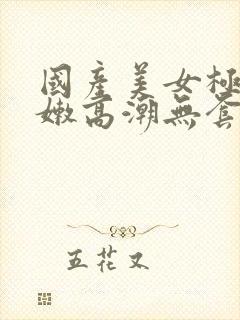 國產美女極
嫩高潮無套
五花又